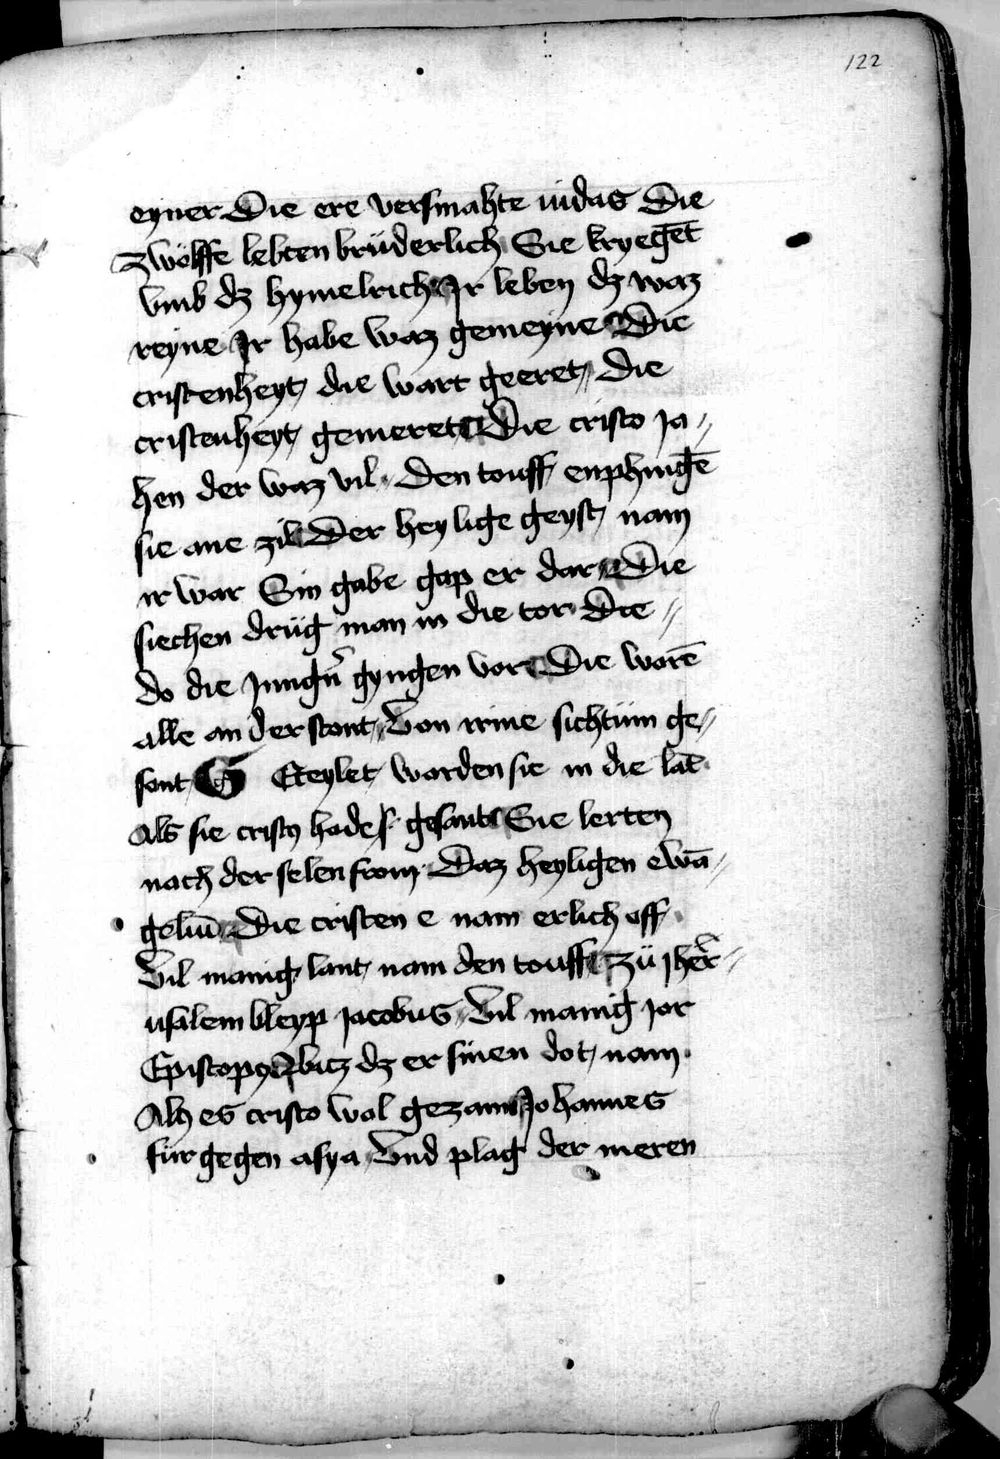 122
eyner Die ere versmahte iudas Die
zwölffe lebten brüderlich Sie kryegēt
vmb dz hymelrich Jr leben dz waz
reyne Jr habe waz gemeyne Die
cristenheyt die wart geeret Die
cristenheyt gemeret Die cristo ja⸗
hen der waz vil Den touff enphingē
sie ane zil Der heylige geyst nam
ir war Sin gabe gap er dar Die
siechen drüg man in die tor Die ⸗
do die jungñ gyngen vor Die worē
alle an der stont Von irme sichtüm ge⸗
sont G Eteylet worden sie in die lāt
Als sie cristꝰ hade gesant Sie lerten
nach der selen from Daz heyligen ewā⸗
geliū Die cristen e nam erlich off
Vil manig lant nam den touff zü jher̄⸗
usalem bleyp jacobus Vil manig jor
Episcopꝰ bicz dz er sinen dot nam
Alz es cristo wol gezam Johannes
für gegen asya Vnd plag der meren